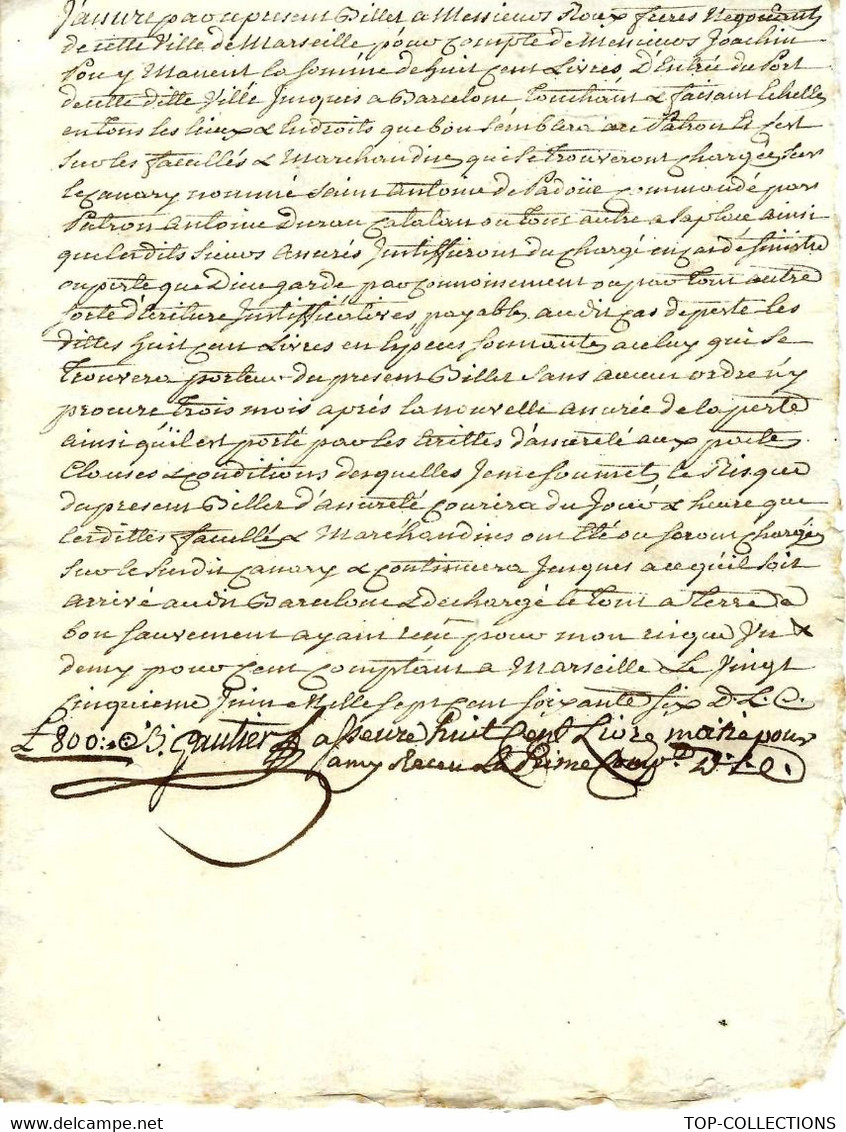 J'assure par ce present Billet a Messieurs Roux freres Negociants
de cette Ville de Marseille pour compte de Messieurs Joachin
Pou y Manent la somme de huit cent Livres D'Entrée du Port
de cette ditte Ville Jusques a Barcelone Touchant & faisant Echelle
en tous les lieux & Endroits que bon semblera au Patron Et c'est
sur les facultés & Marchandises qui se trouveront chargées sur
le Canary nommé Saint Antoine de Padoüe commandé par
Patron Antoine Duran Catalan ou tout autre a sa place ainsi
que lesdits Sieurs Assurés Justiffieront du chargé en cas de sinistre
ou perte que Dieu garde par connoissement ou par tout autre
sorte d'Ecriture Justifficatives payable, audit cas de perte les
dittes huit cent Livres en Especes sonnantes a celuy qui se
trouvera porteur du present Billet sans aucun ordre ny
procure trois mois aprés la nouvelle assurée de la perte
ainsi qu'il est porté par les Ecrittes d'assureté aux pactes,
Clauses & conditions desquelles Je me soumet, le Risque
du present Billet d'assureté courira du Jour & heure que
lesdittes facultés & Marchandises ont été ou seront chargés
sur le susdit Canary & continuera Jusques a ce qu'il soit
arrivé audit Barcelone & dechargé le tout a Terre a
bon sauvement ayant reçu pour mon risque Un &
demy pour cent comptant a Marseille le Vingt
cinquieme Juin Mille sept cent soixante six D. L. C.
£ 800:- B. Gautier asseure huit Cent Livre pour
amy Receu La Prime Comp.t D. L. C.
TOP-COLLECTIONS